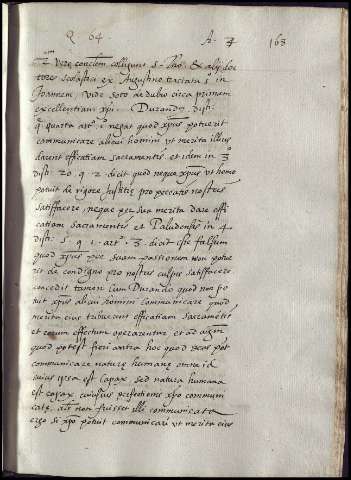 Q 64. A. 4 163
conclem colligunt s. Tho. & alij doc
tores scolastici ex Augustino tractatu 5 in
Joannem, vide Soto de dubio circa primam
excellentiam xpi. Durandus dist.
quarta art. negat quod xpus potuerit
communicare alicui homini ut merita illius
darent efficatiam sacramentis et idem in 3
dist. 20. q. 2. dicit quod neque xpus ut homo
potuit de rigore justitie pro peccatis nostris
satisfacere, neque per sua merita dare effi
catiam sacramentis et Paludensis in 4.
dist. 5. q. 1. art. 3. dicit esse falsum
quod xpus per suam passionem non potue
rit de condigno pro nostris culpis satisfacere
concedit tamen cum Durando quod non po
tuit xpus alicui homini communicare quod
merita eius tribuerent efficatiam sacrametis
et eorum effectum operarentur et ad
quod potest fieri contra hoc quod deus pot
communicare nature humane omne id
cuius ipsa est capax sed natura humana
est capax cuiusvis perfectionis xpo communi
cate, als non fuisset illi communicata
ergo si xpo potuit communicari ut merita eius